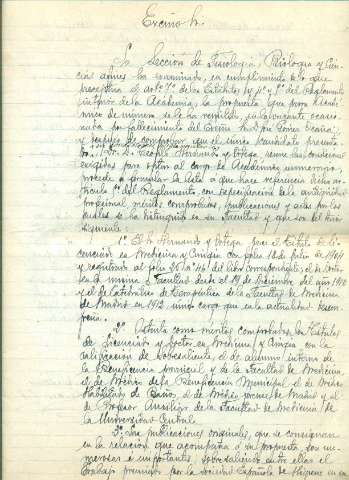 Excmo Sr.
La Sección de Fisiología, Biología y Cien-
cias afines ha examinado, en cumplimiento de lo que
preceptúa el artº 7º de los Estatutos y 4º y 5º del Reglamento
interior de la Academia, la propuesta que para Acadé-
mico de número se le ha remitido, para la vacante ocasio-
nada por fallecimiento del Excmo Sr. D. José Gómez Ocaña,
y después de comprobar que el único candidato presenta-
do, Dr. D. Teófilo Hernando y Ortega, reúne las condiciones
exigidas para optar al cargo de Académico numerario,
procede a formular la lista a que hace referencia dicho ar-
tículo 5º del Reglamento, con especificación de la antigüedad
profesional, méritos comprobados, publicaciones y actos por los
cuales se ha distinguido en su Facultad y que son del tenor
siguiente
1º El Sr. Hernando y Ortega, posee el Título de Li-
cenciado en Medicina y Cirugía con fecha 12 de Julio de 1904
y registrado al folio del libro correspondiente; el de Doctor
en la misma Facultad desde el 19 de Diciembre del año 1910
y el de Catedrático de Terapéutica de la Facultad de Medicina
de Madrid en 1912, único cargo que en la actualidad desem-
peña.
2º Ostenta como méritos comprobados, los Títulos
de Licenciado y Doctor en Medicina y Cirugía con la
calificación de Sobresaliente, el de alumno interno de
la Beneficencia provincial y de la Facultad de Medicina,
el de Médico de la Beneficencia Municipal, el de Médico
habilitado de Baños, el de Médico forense de Madrid y el
de Profesor Auxiliar de la Facultad de Medicina de
la Universidad Central.
3º Las publicaciones originales, que se consignan
en la relación que acompaña a su propuesta son nu-
merosas e importantes, sobresaliendo entre ellas el
trabajo premiado por la Sociedad Española de Higiene en su